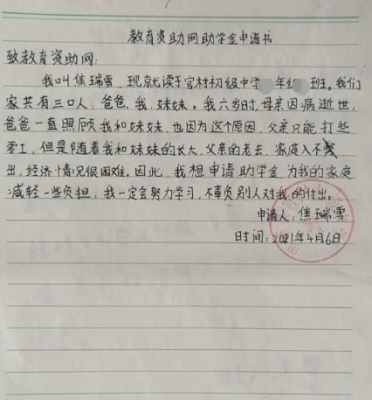 教育资助网助学金申请书
致教育资助网:
我叫焦瑞雪,现就读于官村初级中学 年级 班。我们
家共有三口人,爸爸,我,妹妹。我六岁时,母亲因病逝世,
爸爸一直照顾我和妹妹,也因为这个原因,父亲只能打些
零工,但是随着我和妹妹的长大,父亲的老去,家庭入不敷
出,经济情况很困难。因此,我想申请助学金,为我的家庭
减轻一些负担,我一定会努力学习,不辜负别人对我的付出。
申请人:焦瑞雪
时间:2021年4月6日